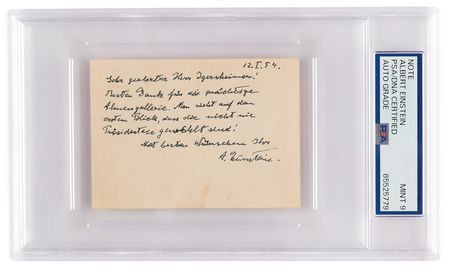 12.I.54.
Sehr geehrter Herr Igersheimer!
Besten Dank für die prächtige
Ahnengallerie. Man sieht auf den
ersten Blick, dass die nicht wie
Präsidenten gewählt sind!
Mit besten Wünschen Ihr
A. Einstein.
NOTE
ALBERT EINSTEIN
PSA/DNA CERTIFIED
AUTO GRADE
MINT 9
85525779
PSA